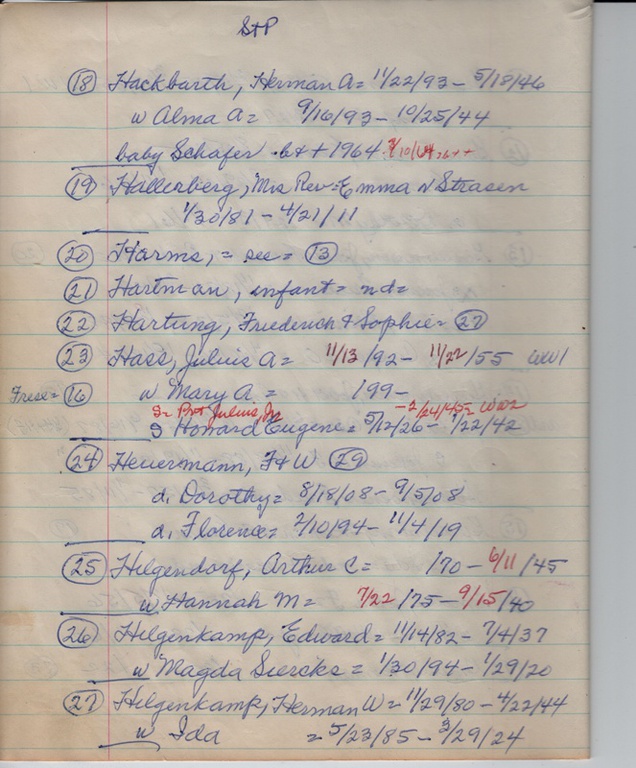 StP
(18) Hackbarth, Herman A= 11/22/93 - 5/18/46
w Alma A= 9/16/93 - 10/25/44
baby Schafer b++ 1964 7/10/64 = b++
(19) Hallerberg, Mrs Rev= Emma N Strasen
1/30/81 - 4/21/11
(20) Harms, = see= (13)
(21) Hartman, infant= nd=
(22) Hartung, Friederich & Sophie= (27)
(23) Hass, Julius A= 11/13/92 - 11/22/55 WW1
Frese= (16) w Mary A. = 199-
S= Pvt Julius, Jr - 2/24/45= WW2
S Howard Eugene= 5/12/26 - 1/22/42
(24) Heuermann, F & W (29)
d. Dorothy= 8/18/08 - 9/5/08
d. Florence= 2/10/94 - 11/4/19
(25) Hilgendorf, Arthur C= /70 - 6/11/45
w. Hannah M= 7/22/75 - 9/15/40
(26) Hilgenkamp, Edward= 11/14/82 - 7/4/37
w Magda Siercks = 1/30/94 - 1/29/20
(27) Hilgenkamp, Herman W= 11/29/80 - 4/22/44
w Ida = 5/23/85 - 3/29/24